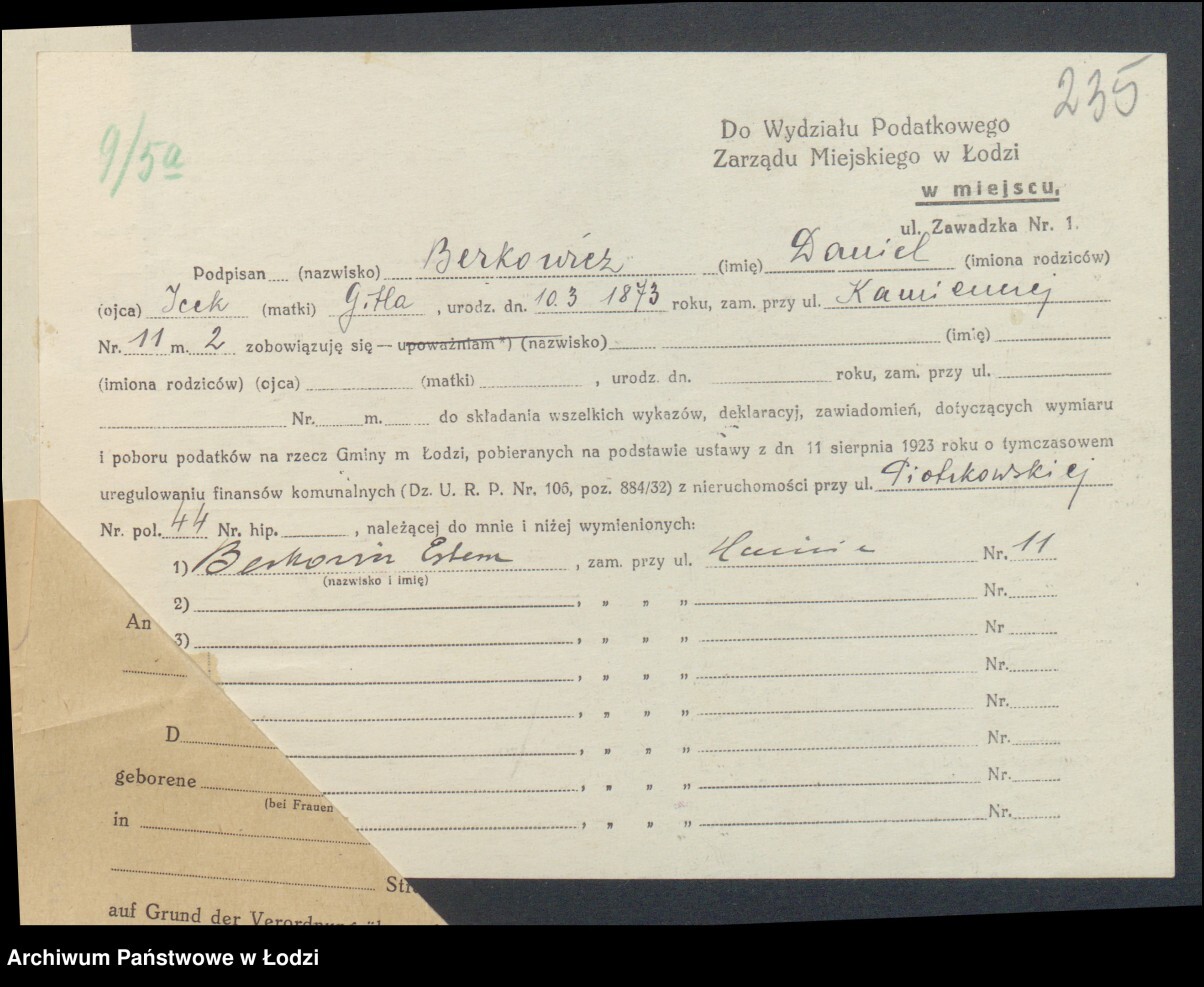 235
9/5a
Do Wydziału Podatkowego
Zarządu Miejskiego w Łodzi
w miejscu,
ul. Zawadzka Nr. 1.
Podpisan.... (nazwisko) Berkowicz (imię) Daniel (imiona rodziców)
(ojca) Icek (matki) Gitla, urodz. dn. 10.3 1873 roku, zam. przy ul. Kamiennej
Nr. 11 m. 2 zobowiązuję się — upoważniam*) (nazwisko) (imię)
(imiona rodziców) (ojca) (matki) , urodz. dn. roku, zam. przy ul.
Nr. m. do składania wszelkich wykazów, deklaracyj, zawiadomień, dotyczących wymiaru
i poboru podatków na rzecz Gminy m Łodzi, pobieranych na podstawie ustawy z dn 11 sierpnia 1923 roku o tymczasowem
uregulowaniu finansów komunalnych (Dz. U. R. P. Nr. 106, poz. 884/32) z nieruchomości przy ul. Piotrkowskiej
Nr. pol. 44 Nr. hip. , należącej do mnie i niżej wymienionych:
1) , zam. przy ul. Nr. 11
(nazwisko i imię)
2) , „ „ „ Nr.
An
3) , „ „ „ Nr
, „ „ „ Nr.
, „ „ „ Nr.
D , „ „ „ Nr.
geborene , „ „ „ Nr.
(bei Frauen
in , „ „ „ Nr.
auf Grund der
Archiwum Państwowe w Łodzi